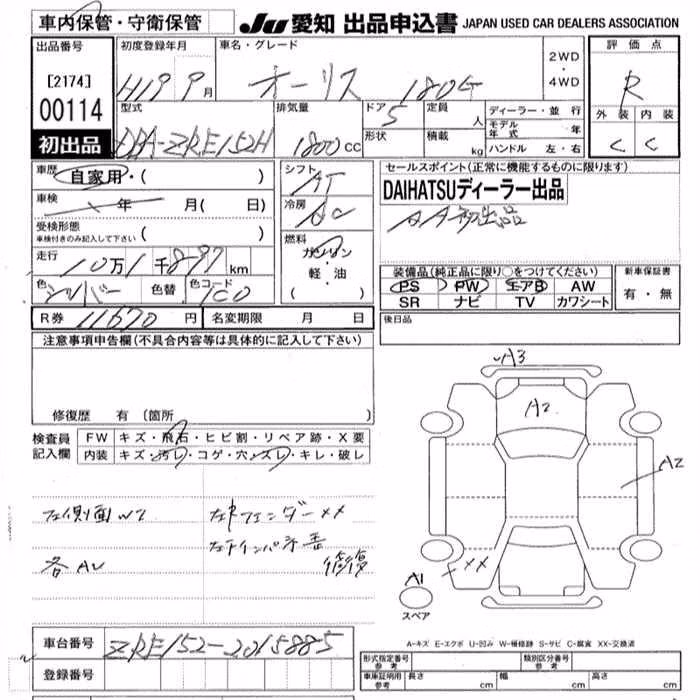 車内保管・守衛保管
JU 愛知 出品申込書 JAPAN USED CAR DEALERS ASSOCIATION
出品番号
[2174]
00114
初出品
初度登録年月
H19 9月
車名・グレード
オーリス 180G
2WD
・
4WD
評価点
R
外装 内装
C C
型式
DBA-ZRE152H
排気量
1800cc
ドア
5
形状
定員
人
積載
kg
ディーラー・並行
モデル年式 年
ハンドル 左・右
車歴
自家用・( )
車検
年 月( 日)
受検形態
車検付きのみ記入して下さい ( )
走行
10万1千897km
色
シルバー
色替
色コード
1C0
シフト
AT
冷房
AC
燃料
ガソリン
軽・油
( )
セールスポイント(正常に機能するものに限ります)
DAIHATSUディーラー出品
装備品(純正品に限り○をつけてください)
PS PW エアB AW
SR ナビ TV カワシート
新車保証書
有・無
R券 11670円
名変期限 月 日
後日品
注意事項申告欄(不具合内容等は具体的に記入して下さい)
修復歴 有 (箇所 )
検査員記入欄
FW キズ・飛石・ヒビ割・リペア跡・X要
内装 キズ・汚レ・コゲ・穴・スレ・キレ・破レ
左側面W2
各AU
左Fフェンダー××
修復
A3
A2
A2
××
A1
スペア
A-キズ E-エクボ U-凹み W-補修跡 S-サビ C-腐食 XX-交換済
車台番号 ZRE152-2015885
登録番号
形式指定番号
参考
類別区分番号
参考
車庫証明用
参考
長さ cm
幅 cm
高さ cm